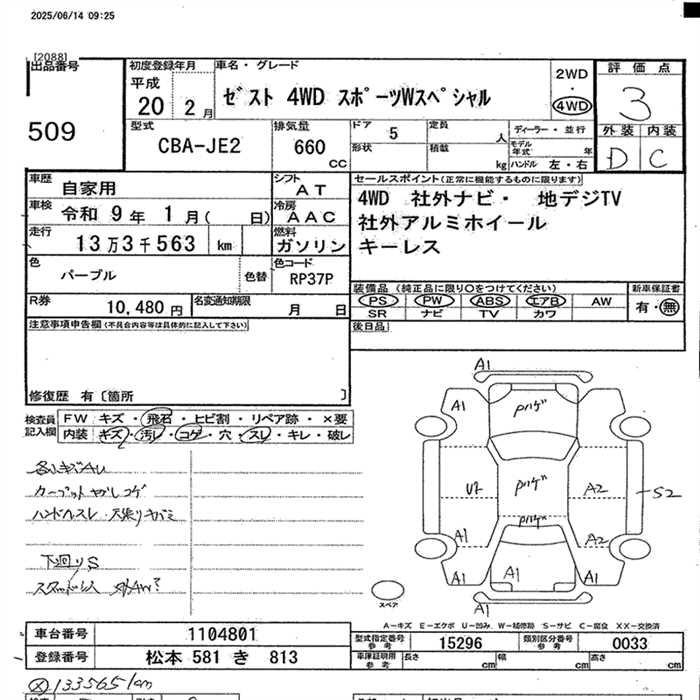 2025/06/14 09:25
[2088]
出品番号
509
初度登録年月
平成
20 2月
車名・グレード
ゼスト 4WD スポーツWスペシャル
2WD
4WD
評価点
3
外装 内装
D C
型式
CBA-JE2
排気量
660
CC
ドア 5
形状
定員 人
積載 kg
ディーラー・並行
モデル年式 年
ハンドル 左・右
車歴
自家用
シフト
AT
車検
令和 9年 1月( 日)
冷房
AAC
走行
13万3千563 km
燃料
ガソリン
色
パープル
色替
色コード
RP37P
R券
10,480 円
名変通知期限
月 日
セールスポイント(正常に機能するものに限ります)
4WD 社外ナビ・ 地デジTV
社外アルミホイール
キーレス
装備品 (純正品に限り○をつけてください)
PS PW ABS エアB AW
SR ナビ TV カワ
新車保証書
有・無
後日品
注意事項申告欄(不具合内容等は具体的に記入して下さい)
修復歴 有〔箇所 〕
検査員記入欄
FW キズ・飛石・ヒビ割・リペア跡・×要
内装 キズ・汚レ・コゲ・穴・スレ・キレ・破レ
カーペット ヤケ コゲ
ハンドルスレ・天張りキバミ
下廻りS
A1
A1
Pハゲ
U2
Pハゲ
A2
S2
Pハゲ
A1
A2
A1
A1
A1
A1
スペア
A－キズ E－エクボ U－凹み W－補修跡 S－サビ C－腐食 XX－交換済
車台番号
1104801
登録番号
松本 581 き 813
型式指定番号
参考
15296
類別区分番号
参考
0033
車庫証明用
参考
長さ cm
幅 cm
高さ cm
133565km